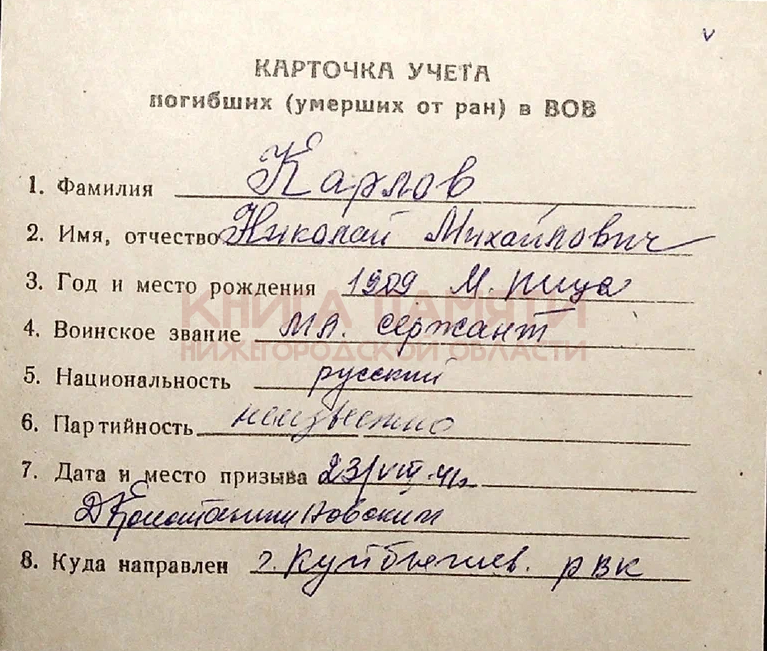 v
КАРТОЧКА УЧЕТА
погибших (умерших от ран) в ВОВ
1. Фамилия Карлов
2. Имя, отчество Николай Михайлович
3. Год и место рождения 1909 М. пица
КНИГА ПАМЯТИ
4. Воинское звание мл. сержант
НИЖЕГОРОДСКОЙ ОБЛАСТИ
5. Национальность русский
6. Партийность неизвестно
7. Дата и место призыва 23/VIII-41г
Д Константиновским
8. Куда направлен г. Куйбышев. рвк